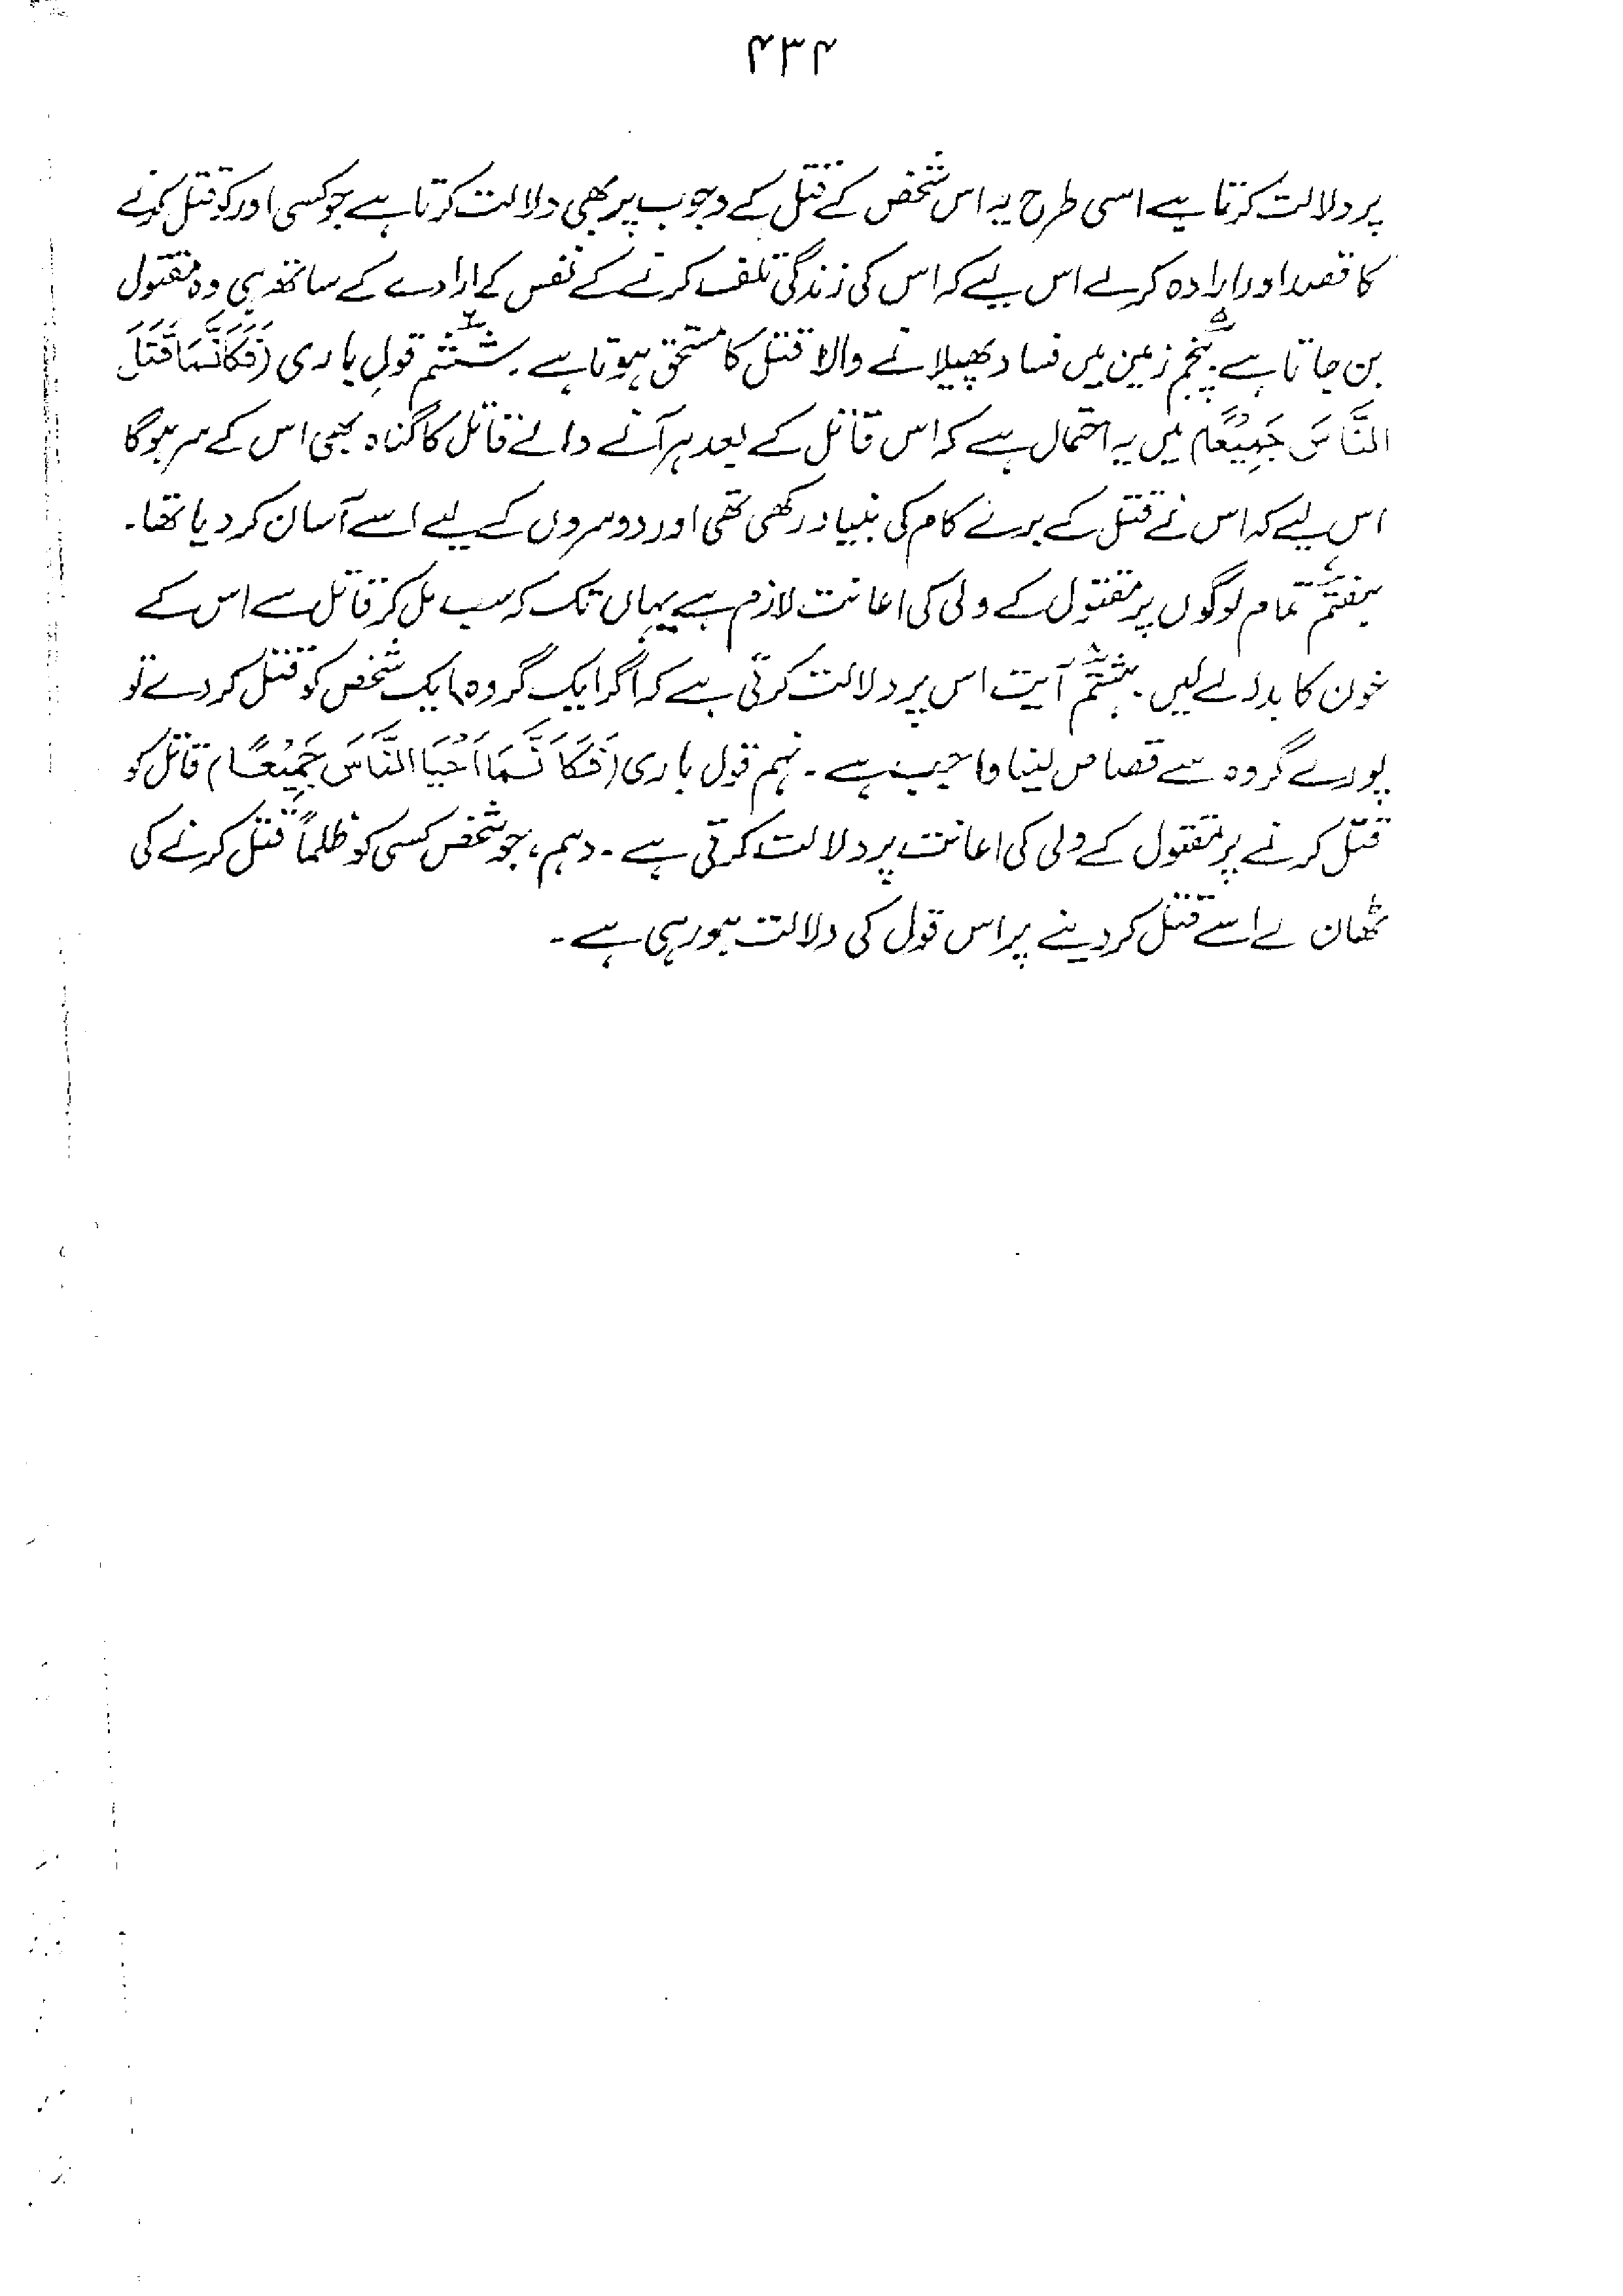 ۴۳۴
پر دلالت کرتا ہے اسی طرح یہ اس شخص کے قتل کے وجوب پر بھی دلالت کرتا ہے جو کسی اور کو قتل کرنے
کا قصد اور ارادہ کرلے اس لیے کہ اس کی زندگی تلف کرنے کے نفس کے ارادے کے ساتھ ہی وہ مقتول
بن جاتا ہے۔ پنجم زمین میں فساد پھیلانے والا قتل کا مستحق ہوتا ہے۔ ششم قولِ باری (فَكَاَنَّمَا قَتَلَ
النَّاسَ جَمِيْعًا) میں یہ احتمال ہے کہ اس قاتل کے بعد ہر آنے والے قاتل کا گناہ بھی اس کے سر ہوگا
اس لیے کہ اس نے قتل کے برے کام کی بنیاد رکھی تھی اور دوسروں کے لیے اسے آسان کر دیا تھا۔
ہفتم تمام لوگوں پر مقتول کے ولی کی اعانت لازم ہے یہاں تک کہ سب مل کر قاتل سے اس کے
خون کا بدلہ لے لیں۔ ہشتم آیت اس پر دلالت کرتی ہے کہ اگر ایک گروہ ایک شخص کو قتل کر دے تو
پورے گروہ سے قصاص لینا واجب ہے۔ نہم قول باری (فَكَاَنَّمَا اَحْيَا النَّاسَ جَمِيْعًا) قاتل کو
قتل کرنے پر مقتول کے ولی کی اعانت پر دلالت کرتی ہے۔ دہم، جو شخص کسی کو ظلماً قتل کرنے کی
ٹھان لے اسے قتل کر دینے پر اس قول کی دلالت ہو رہی ہے۔